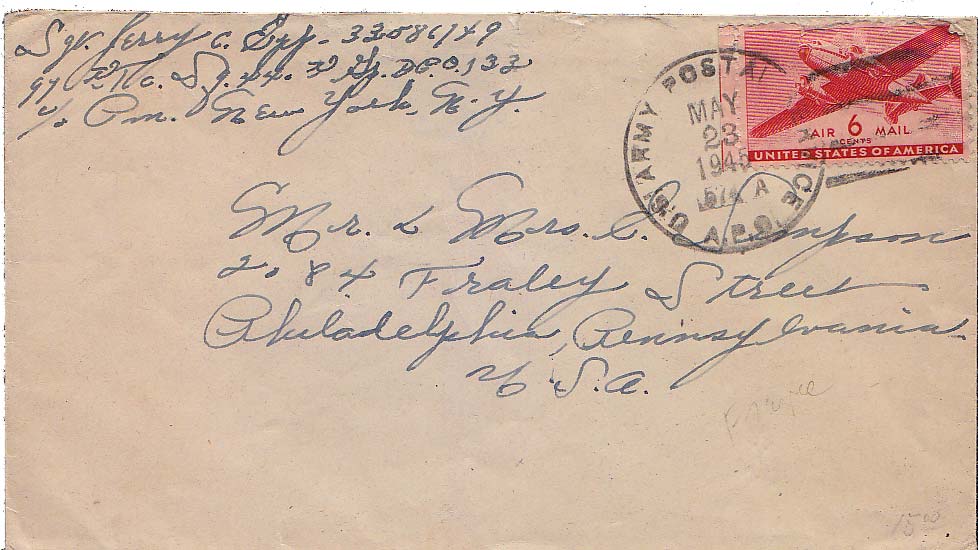 Sgt. Jerry C. Epp - 33086149
Sq. 44. A.P.O. 133
c/o P.m. New York, N.Y.
U.S. ARMY POSTAL SERVICE
MAY
23
1945
A
A.P.O.
AIR 6 MAIL
CENTS
UNITED STATES OF AMERICA
Mr. & Mrs. C. Simpson
2084 Fraley Street
Philadelphia, Pennsylvania
U.S.A.
France
15.00